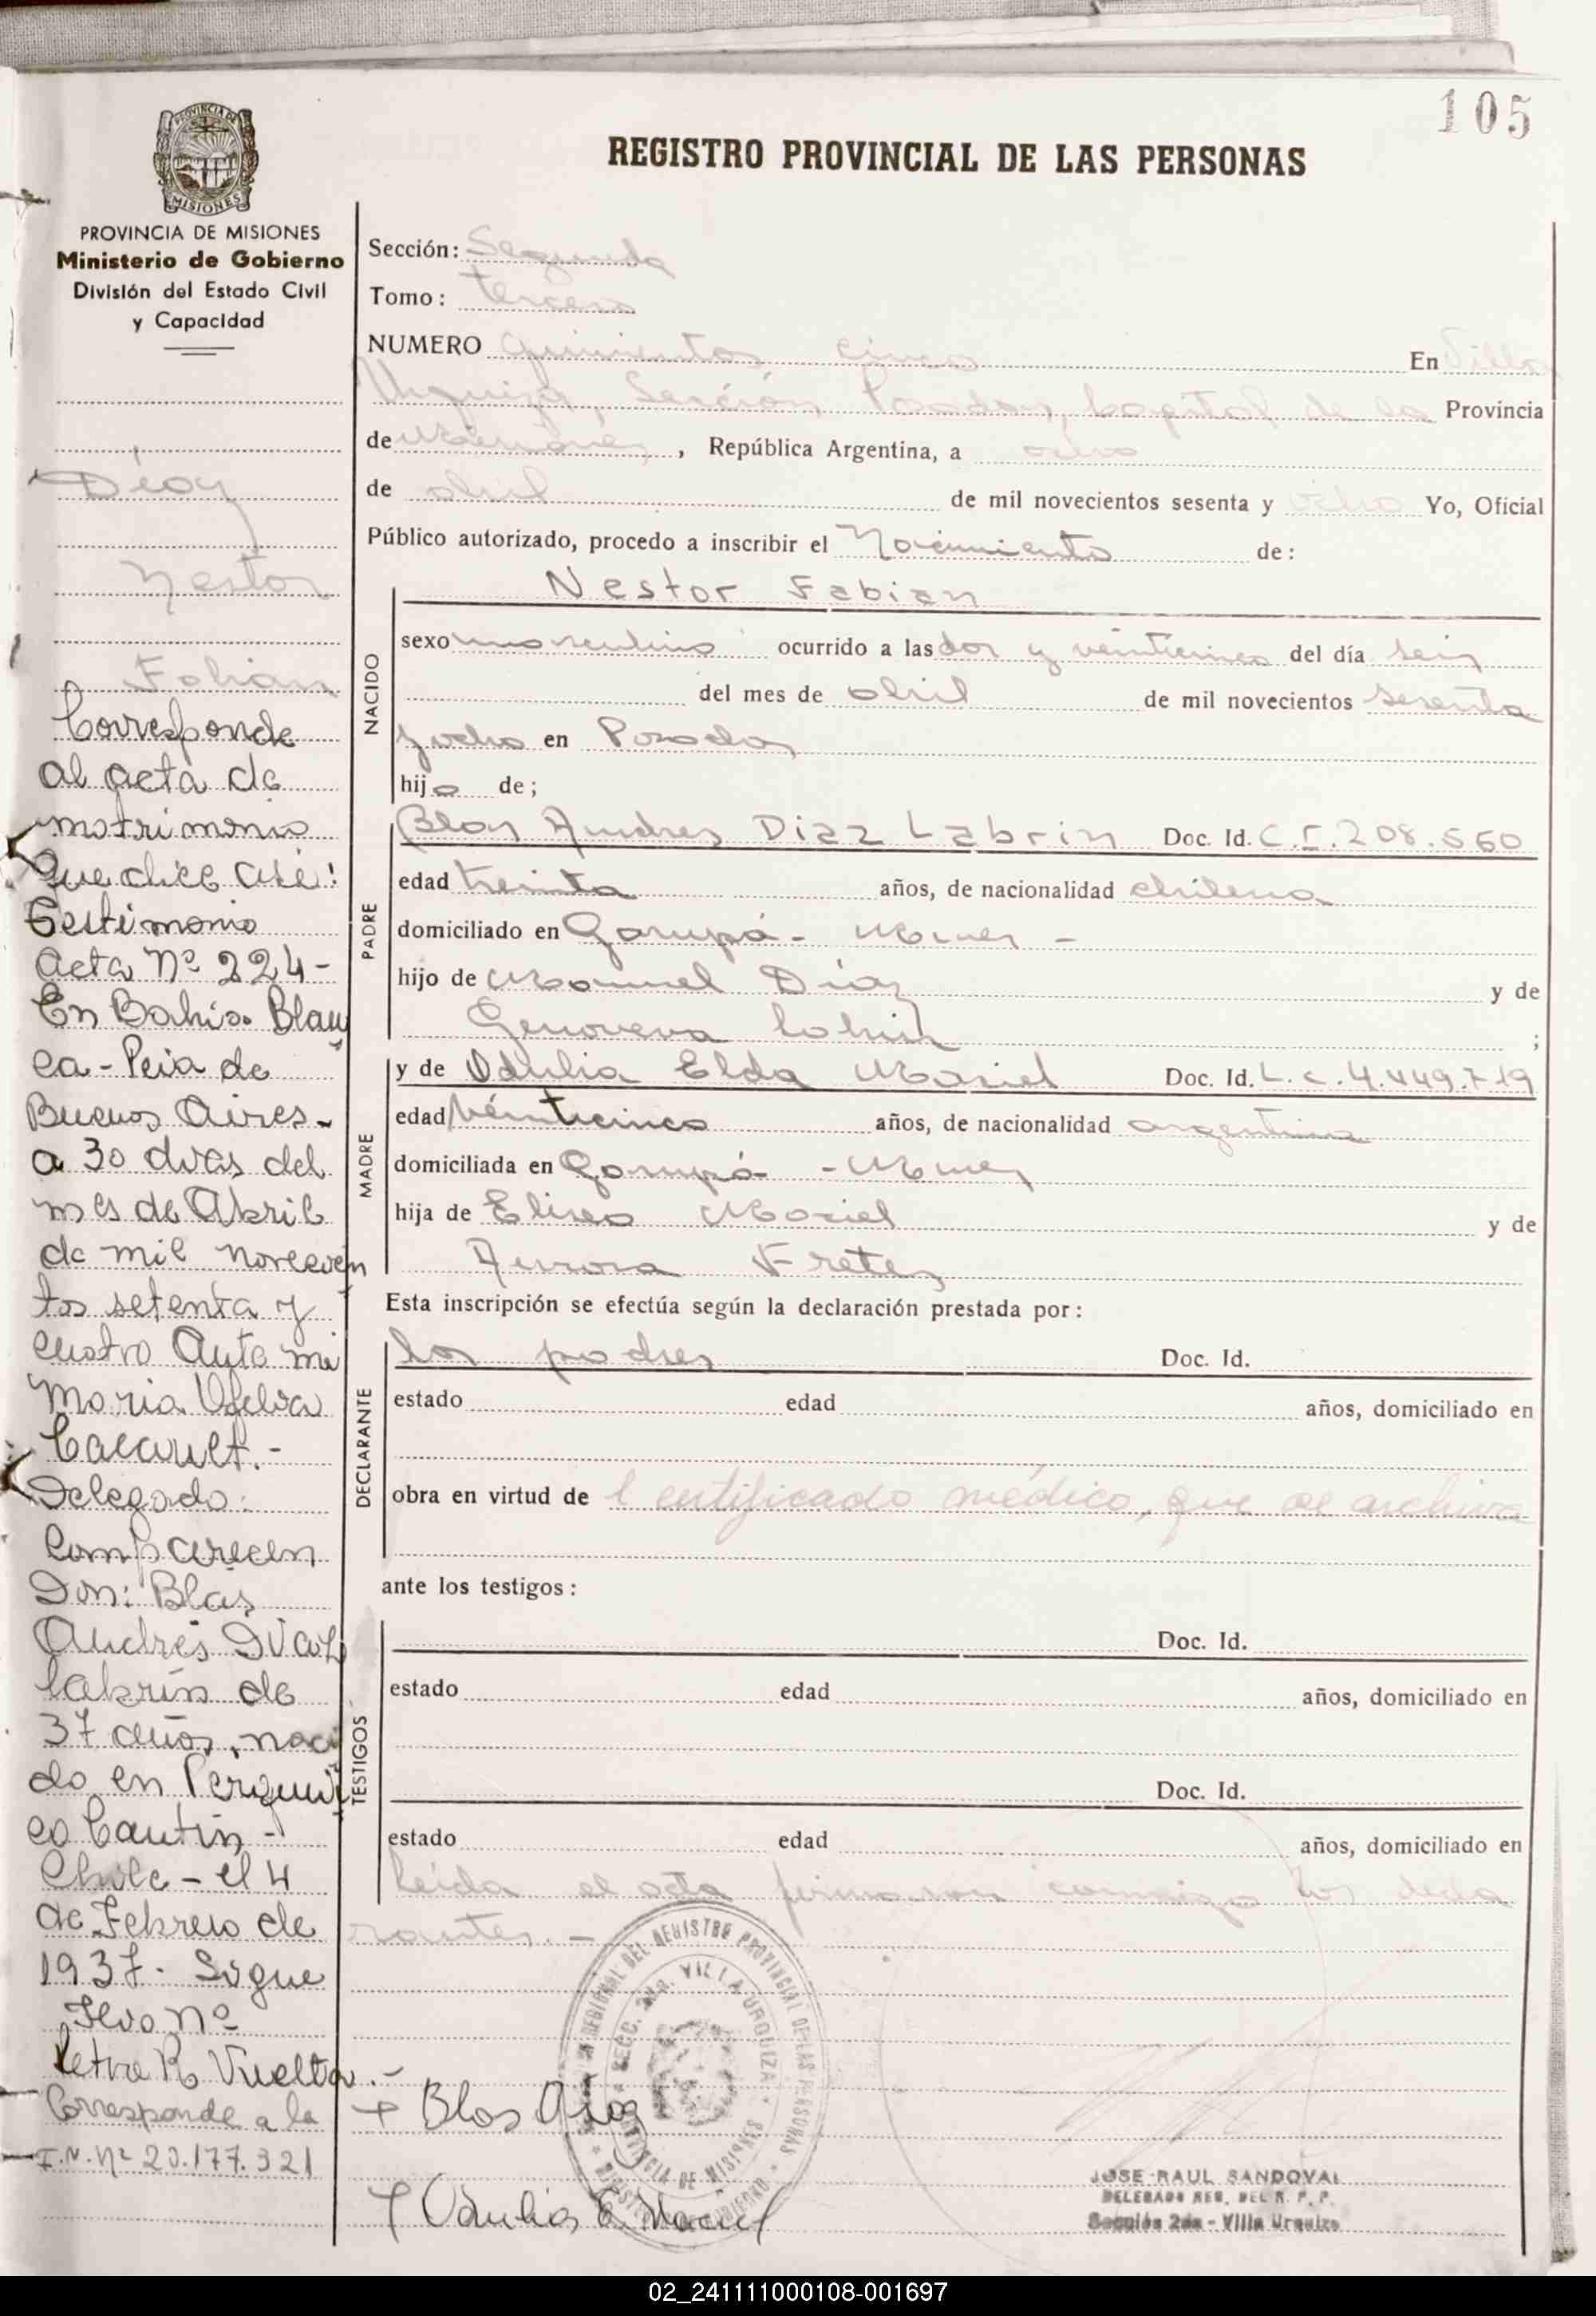 105
REGISTRO PROVINCIAL DE LAS PERSONAS
PROVINCIA DE
MISIONES
PROVINCIA DE MISIONES
Ministerio de Gobierno
División del Estado Civil
y Capacidad
Diaz
Nestor
Fabian
Corresponde
al acta de
matrimonio
que dice así:
Testimonio
acta Nº 224-
En Bahia Blan
ca - Pcia de
Buenos Aires -
a 30 dias del
mes de Abril
de mil novecien
tos setenta y
cuatro Ante mi
Maria
Delegado:
Comparecen
Don: Blas
Andrés Diaz
Labrín de
37 años, naci
do en Perquen
co Cautín -
Chile - el 4
de Febrero de
1937 - Sigue
Nº
Letra R Vuelta.-
Corresponde a la
I.N. Nº 20.177.321
Sección: Segunda
Tomo: tercero
NUMERO quinientos cinco En Villa
Urquiza, Sección Posadas, Capital de la Provincia
de Misiones, República Argentina, a ocho
de abril de mil novecientos sesenta y ocho Yo, Oficial
Público autorizado, procedo a inscribir el Nacimiento de:
NACIDO
Nestor Fabian
sexo masculino ocurrido a las dos y veinticinco del día seis
del mes de abril de mil novecientos sesenta
y ocho en Posadas
hijo de;
PADRE
Blas Andres Diaz Labrin Doc. Id. C.I. 208.560
edad treinta años, de nacionalidad chilena
domiciliado en Garupá - Mnes -
hijo de Manuel Diaz y de
Genoveva Labrin ;
MADRE
y de Odulia Elda Maciel Doc. Id. L.C. 4.449.719
edad veinticinco años, de nacionalidad argentina
domiciliada en Garupá - Mnes
hija de Eliseo Maciel y de
Aurora Fretes
Esta inscripción se efectúa según la declaración prestada por:
DECLARANTE
los padres Doc. Id.
estado edad años, domiciliado en
obra en virtud de Certificado médico, que se archiva
ante los testigos:
TESTIGOS
Doc. Id.
estado edad años, domiciliado en
Doc. Id.
estado edad años, domiciliado en
Leida el acta firmaron conmigo los decla
rantes. -
REGIONAL DEL REGISTRO PROVINCIAL DE LAS PERSONAS
SECC. 2da. VILLA URQUIZA
PROVINCIA DE MISIONES
+ Blas Diaz
+ Odulia E. Maciel
JOSE RAUL SANDOVAL
DELEGADO REG. DEL R. P. P.
Sección 2da - Villa Urquiza
02_241111000108-001697